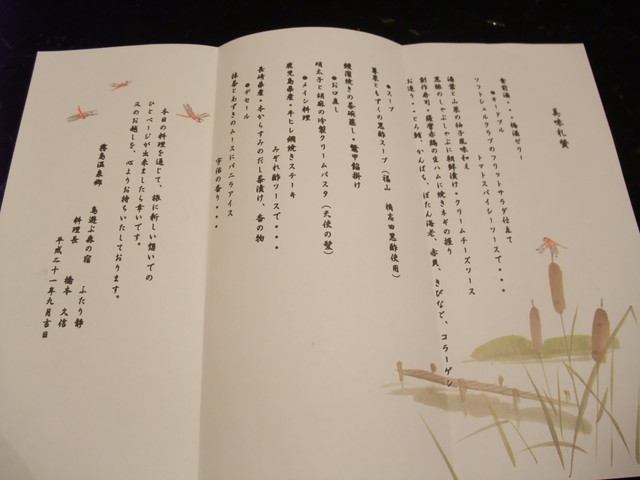 美味礼賛
食前酒・・・梅酒ゼリー
●オードブル
ソフトシェルクラブのフリットサラダ仕立て
トマトスパイシーソースで・・・
湯葉と山菜の柚子風味和え
黒豚のしゃぶしゃぶに朝鮮漬け・クリームチーズソース
創作寿司・薩摩赤鶏の生ハムに焼きネギの握り
お造り・・とろ鯖、かんぱち、ぼたん海老、赤貝、きびなご、コラーゲン
●スープ
蓴菜ともずくの黒酢スープ（福山 桷志田黒酢使用）
鰻蒲焼きの茶碗蒸し・鼈甲餡掛け
●お口直し
明太子と胡麻の冷製クリームパスタ（天使の髪）
●メイン料理
鹿児島県産・牛ヒレ網焼きステーキ
みぞれ酢ソースで・・・
長崎県産・本からすみのだし茶漬け、香の物
●デセール
抹茶とあずきのムースにバニラアイス
宇治の香り・・・
本日の料理を通じて、旅に新しい憩いでの
ひとページが出来ましたら幸いです。
又のお越しを、心よりお待ちいたしております。
霧島温泉郷
鳥遊ぶ森の宿 ふたり静
料理長 橋本 久信
平成二十一年九月吉日